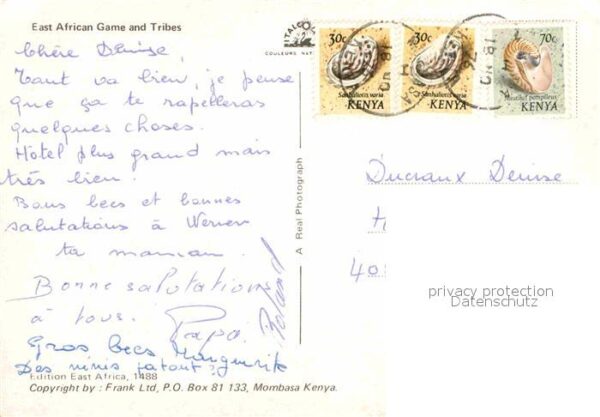 East African Game and Tribes
COULEURS NAT
30c
Sanhaliotis varia
KENYA
30c
Sanhaliotis varia
KENYA
70c
Nautilus pompileus
KENYA
Chère Denise,
Tout va bien, je pense
que ça te rapelleras
quelques choses.
Hôtel plus grand mais
très bien.
Bons becs et bonnes
salutations à Werner
ta maman.
Bonne salutations
à tous. Papa.
Roland
Gros becs Marguerite
Des minis
A Real Photograph
Ducraux Denise
40
privacy protection
Datenschutz
Edition East Africa, 1488
Copyright by : Frank Ltd, P.O. Box 81 133, Mombasa Kenya.